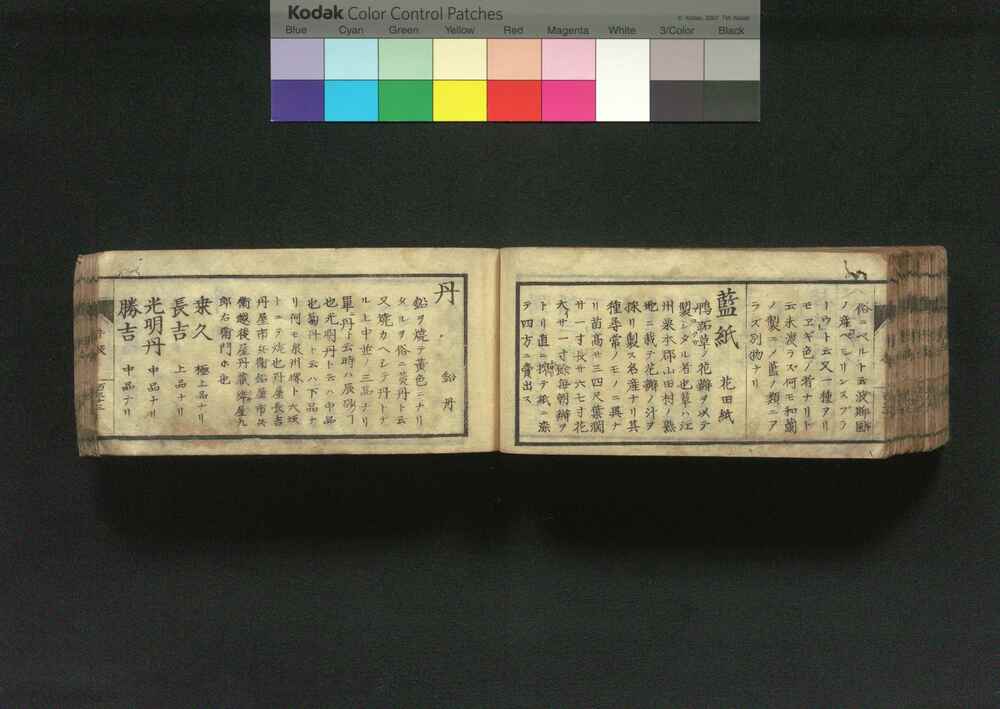 Kodak Color Control Patches
© Kodak, 2007 TM: Kodak
Blue Cyan Green Yellow Red Magenta White 3/Color Black
俗ニベルト云波斯國
ノ産ベルリンスブラ
ートウト云又一種アリ
モヱギ色ノ者ナリト
云永渡ラス何モ和蘭
ノ製ニメ藍ノ類ニア
ラズ別物ナリ
藍紙 花田紙
鴨跖草ノ花瓣ヲ以テ
製シタル者也草ハ江
州栗本郡山田村ノ熟
地ニ栽テ花瓣ノ汁ヲ
採リ製ス名産ナリ其
種尋常ノモノニ異ナ
リ苗高サ三四尺葉濶
サ一寸長サ六七寸花
大サ一寸餘毎朝瓣ヲ
トリ直ニ搾テ紙ニ染
テ四方ニ賣出ス
丹 鉛丹
鉛ヲ燒テ黄色ニナリ
タルヲ俗ニ炭丹ト云
又燒カヘシテ丹トナ
ル上中並ノ三品アリ
單丹ト云時ハ辰砂ノ一
也光明丹ト云ハ中品
也勘件ト云ハ下品ナ
リ何モ泉州堺ト大坂
トニテ燒也丹屋長吉
丹屋市兵衞鉛屋市兵
衞越後屋丹藏岸屋九
郎右衞門ホ也
泉久 極上品ナリ
長吉 上品ナリ
光明丹 中品ナリ
勝吉 中品ナリ